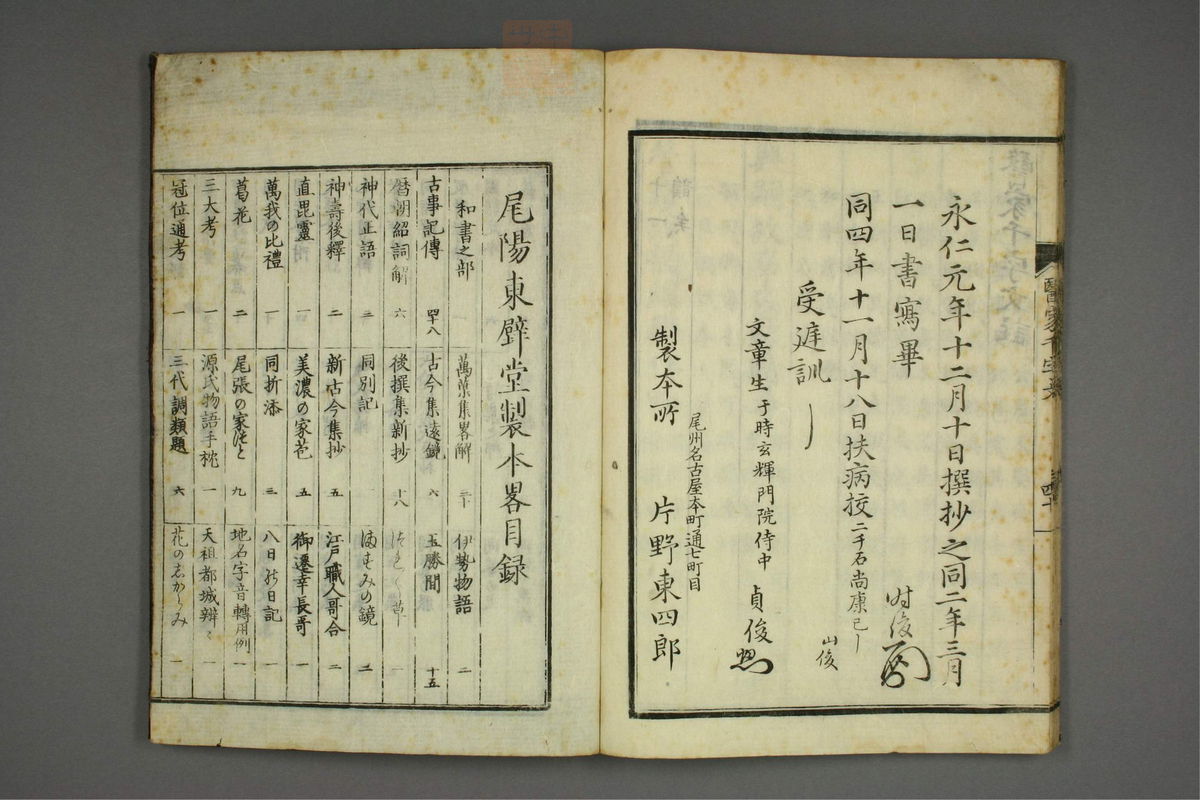 永仁元年十二月十日撰抄之同二年三月
一日書寫畢
時俊
同四年十一月十八日扶病挍二千石尚康已
山俊
受遅訓
文章生于時玄輝門院侍中 貞俊
尾州名古屋本町通七町目
製本所 片野東四郎
醫家千字文
四十
尾陽東壁堂製本畧目録
和書之部 萬葉集畧解 三十 伊勢物語 二
古事記傳 四十八 古今集遠鏡 六 玉勝間 十五
暦潮紹詞解 六 後撰集新抄 十八
神代正語 三 同別記 一 満すみの鏡 二
神壽後釋 二 新古今集抄 五 江戸職人哥合 二
直毘靈 一 美濃の家苞 五 御遷幸長哥 一
萬我の比禮 一 同折添 三 八日の日記 一
葛花 二 尾張の家つと 九 地名字音轉用例 一
三大考 一 源氏物語手枕 一 天祖都城辨々 一
冠位通考 一 三代調類題 六 花のしからみ 一